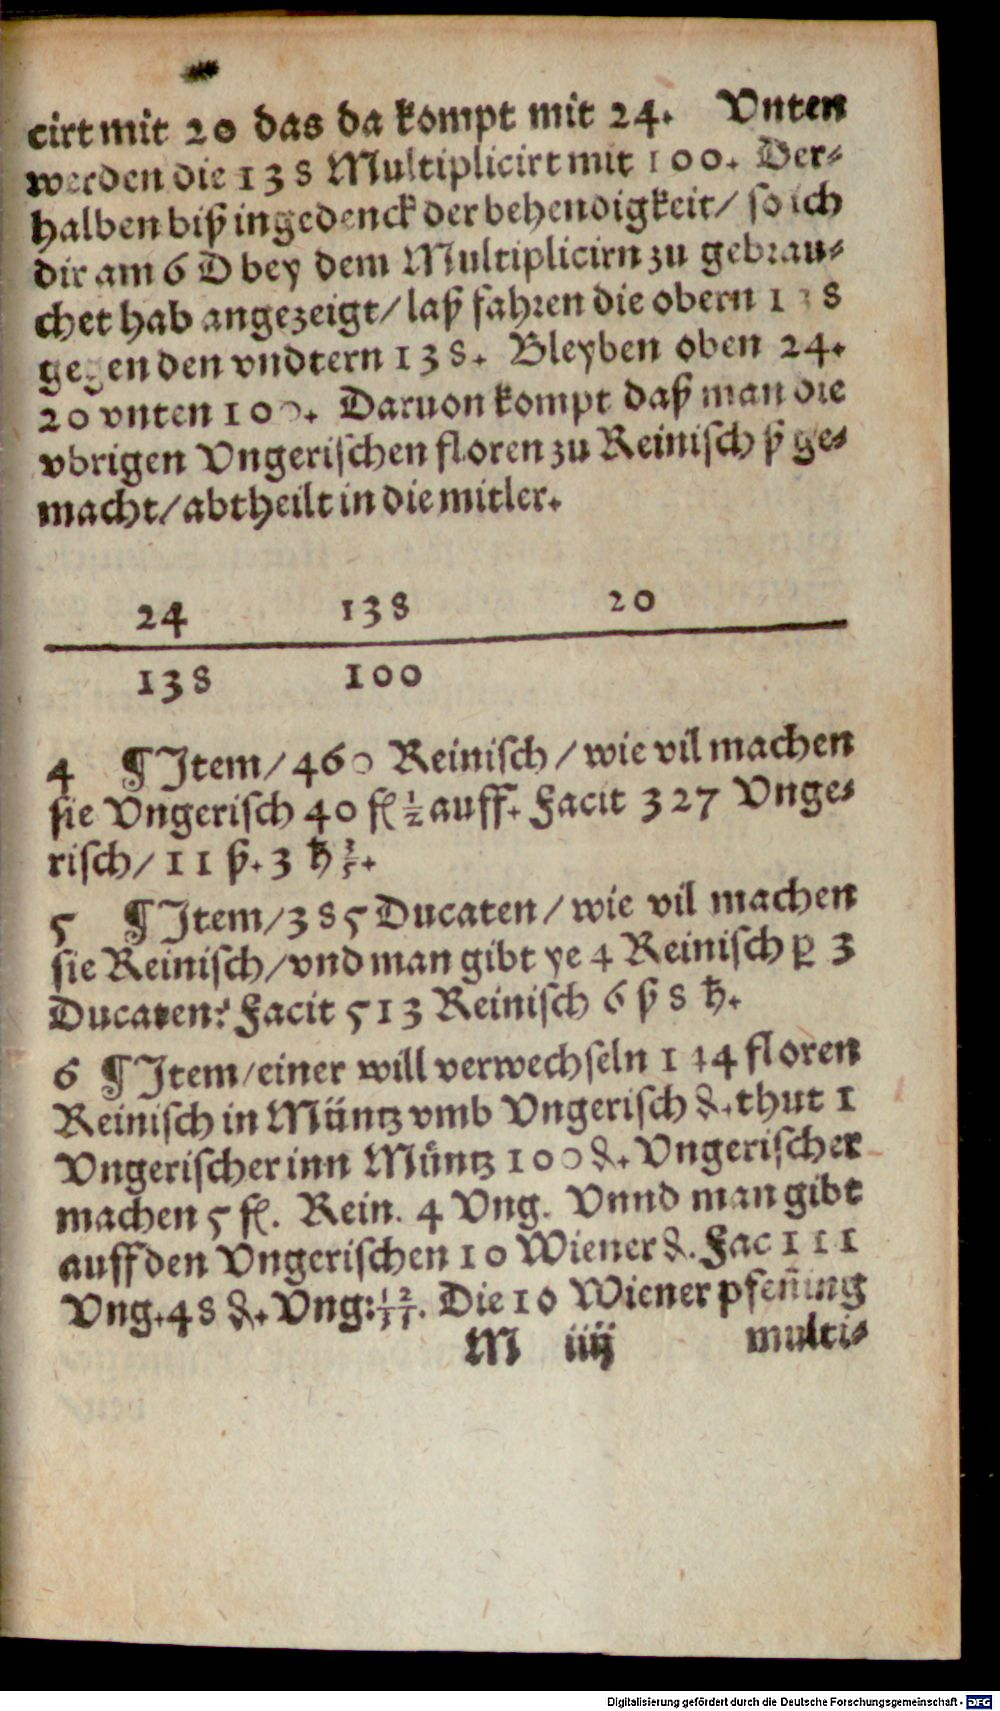 cirt mit 20 das da kompt mit 24. Vnten
werden die 138 Multiplicirt mit 100. Der⸗
halben biß ingedenck der behendigkeit/ so ich
dir am 6 D bey dem Multiplicirn zu gebrau⸗
chet hab angezeigt/ laß fahren die obern 138
gegen den vndtern 138. Bleyben oben 24.
20 vnten 100. Daruon kompt daß man die
vbrigen Vngerischen floren zu Reinisch ß ge⸗
macht/ abtheilt in die mitler.
24 138 20
138 100
4 ¶ Item/ 460 Reinisch/ wie vil machen
sie Vngerisch 40 fl ½ auff. Facit 327 Vnge⸗
risch/ 11 ß. 3 hl
5 ¶ Item/ 385 Ducaten/ wie vil machen
sie Reinisch/ vnd man gibt ye 4 Reinisch ꝑ 3
Ducaten: Facit 513 Reinisch 6 ß 8 hl.
6 ¶ Item/ einer will verwechseln 144 floren
Reinisch in Müntz vmb Vngerisch ₰. thut 1
Vngerischer inn Müntz 100 ₰. Vngerischer
machen 5 fl. Rein. 4 Vng. Vnnd man gibt
auff den Vngerischen 10 Wiener ₰. Fac 111
Vng. 48 ₰. Vng: 12/17. Die 10 Wiener pfen̄ing
M iiij multi⸗
Digitalisierung gefördert durch die Deutsche Forschungsgemeinschaft - DFG